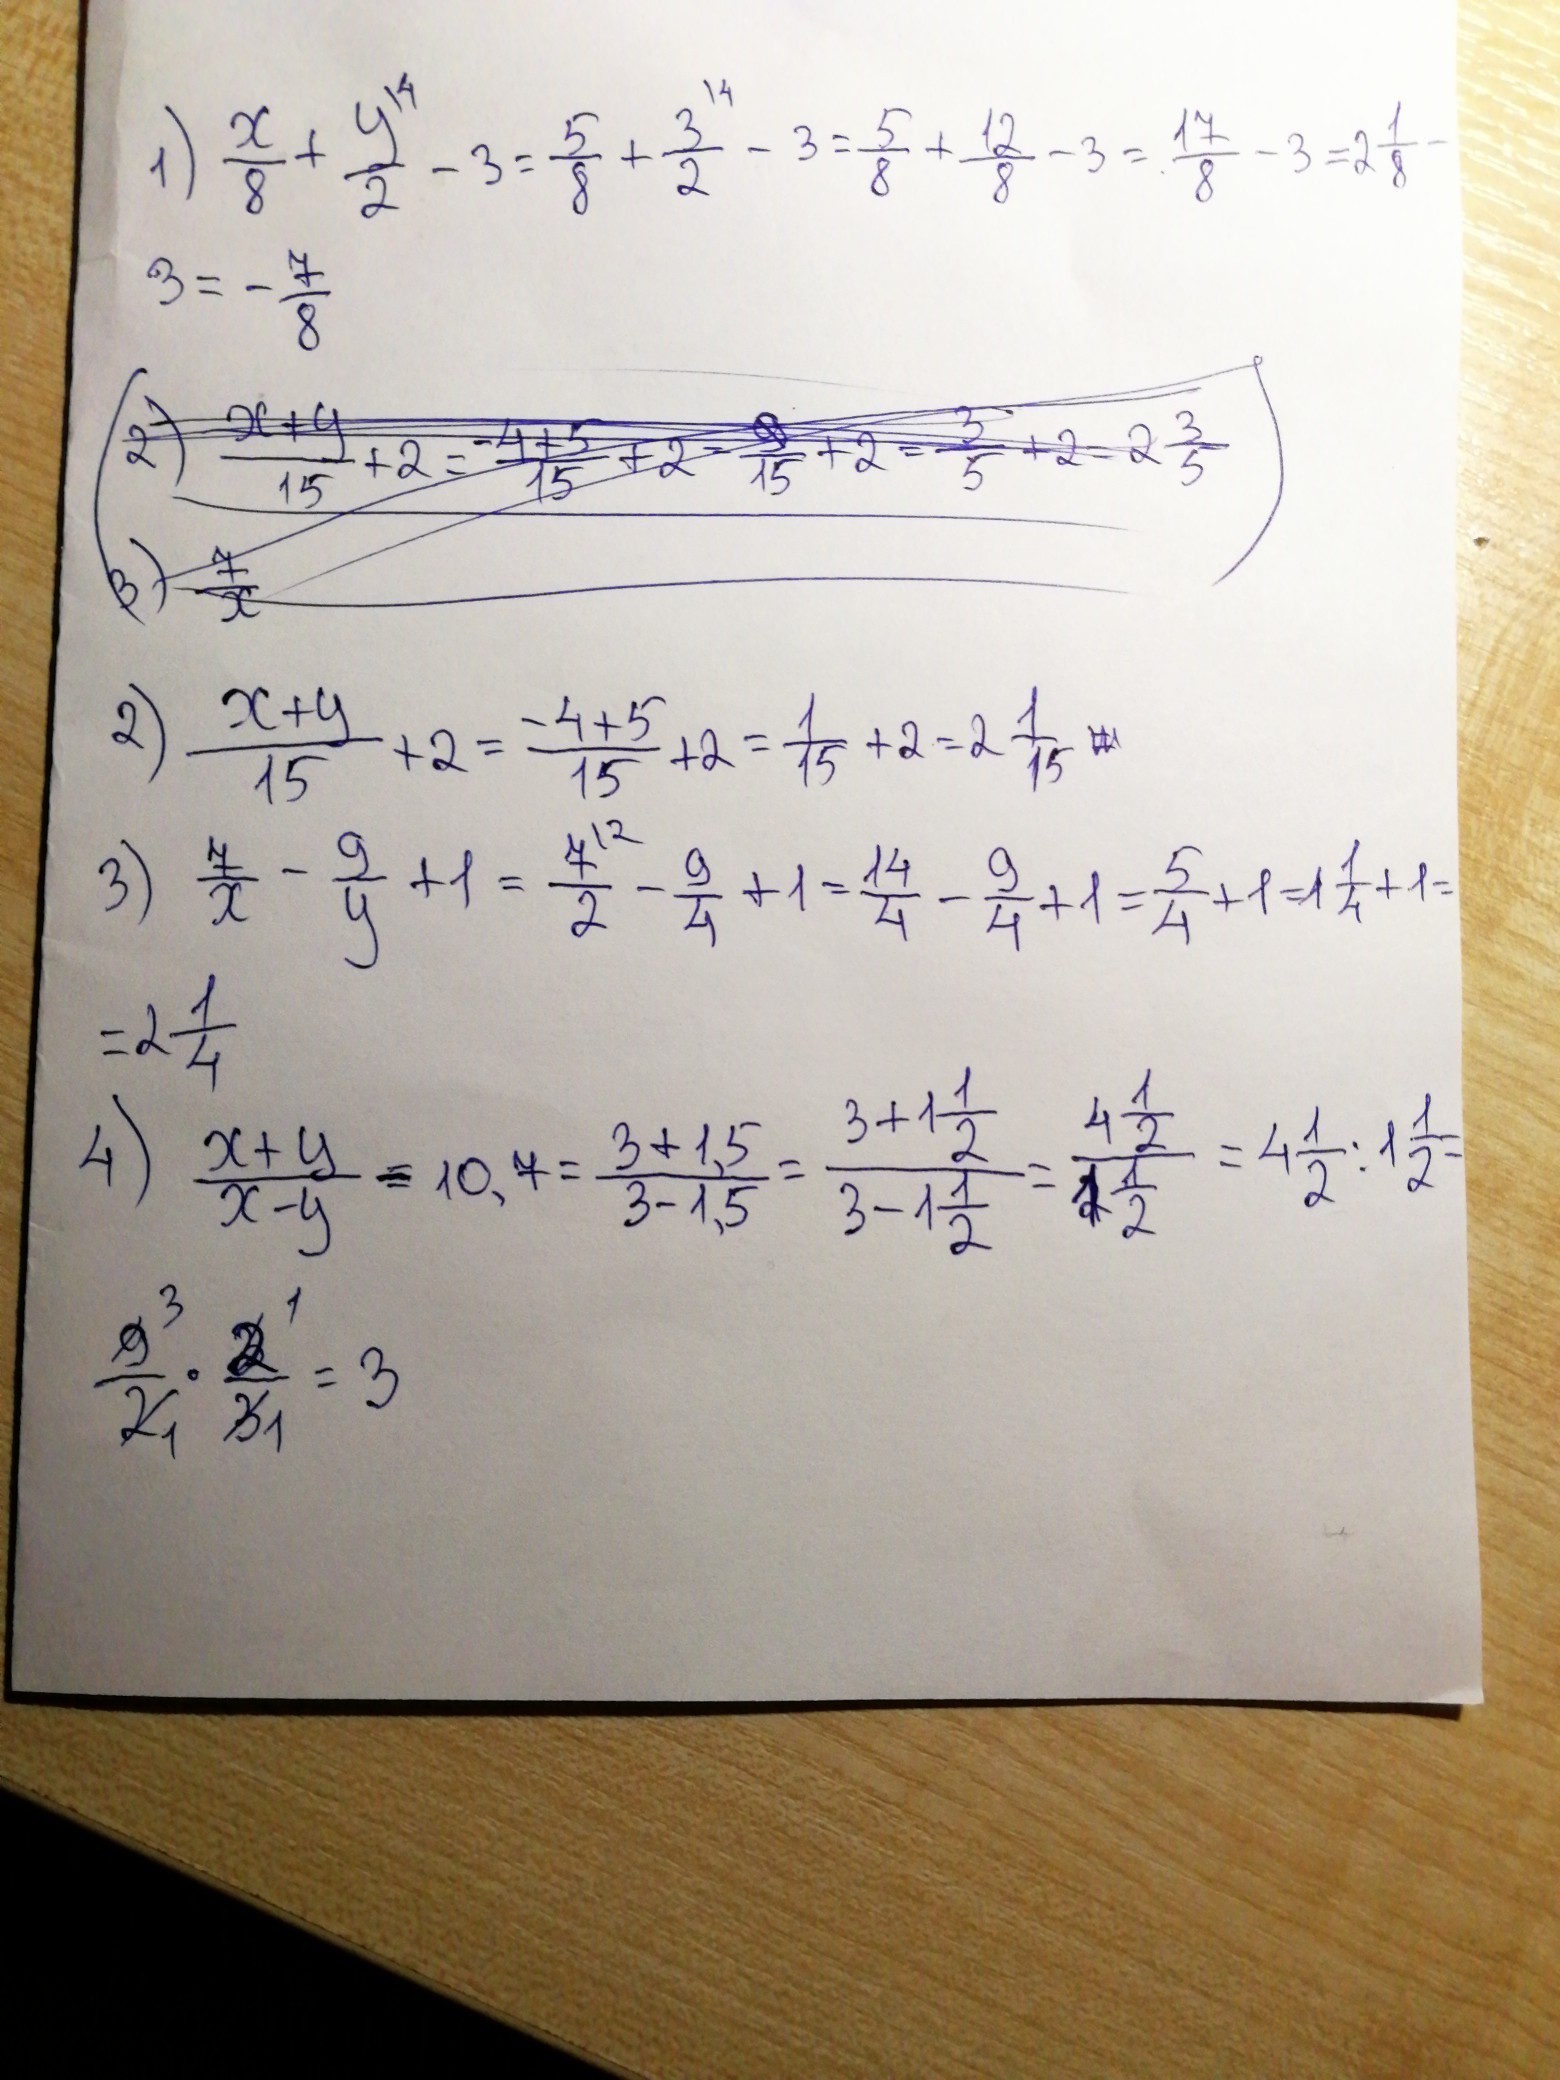 1) x/8 + y\4/2 - 3 = 5/8 + 3\4/2 - 3 = 5/8 + 12/8 - 3 = 17/8 - 3 = 2 1/8 -
3 = - 7/8
2) x+y/15 + 2 = -4+5/15 + 2 = 9/15 + 2 = 3/5 + 2 = 2 3/5
3) 7/x
2) x+y/15 + 2 = -4+5/15 + 2 = 1/15 + 2 = 2 1/15
3) 7/x - 9/y + 1 = 7\2/2 - 9/4 + 1 = 14/4 - 9/4 + 1 = 5/4 + 1 = 1 1/4 + 1 =
= 2 1/4
4) x+y/x-y = 10,7 = 3+1,5/3-1,5 = 3+1 1/2/3-1 1/2 = 4 1/2/1 1/2 = 4 1/2 : 1 1/2 =
9 3/2 1 · 2 1/3 1 = 3